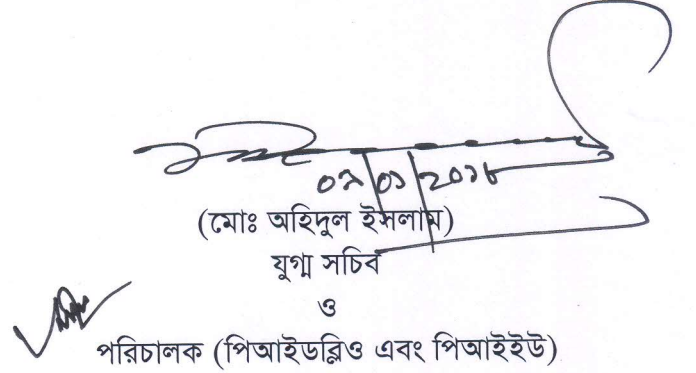 ০৭/০১/২০১৮
(মোঃ অহিদুল ইসলাম)
যুগ্ম সচিব
ও
পরিচালক (পিআইডব্লিও এবং পিআইইউ)